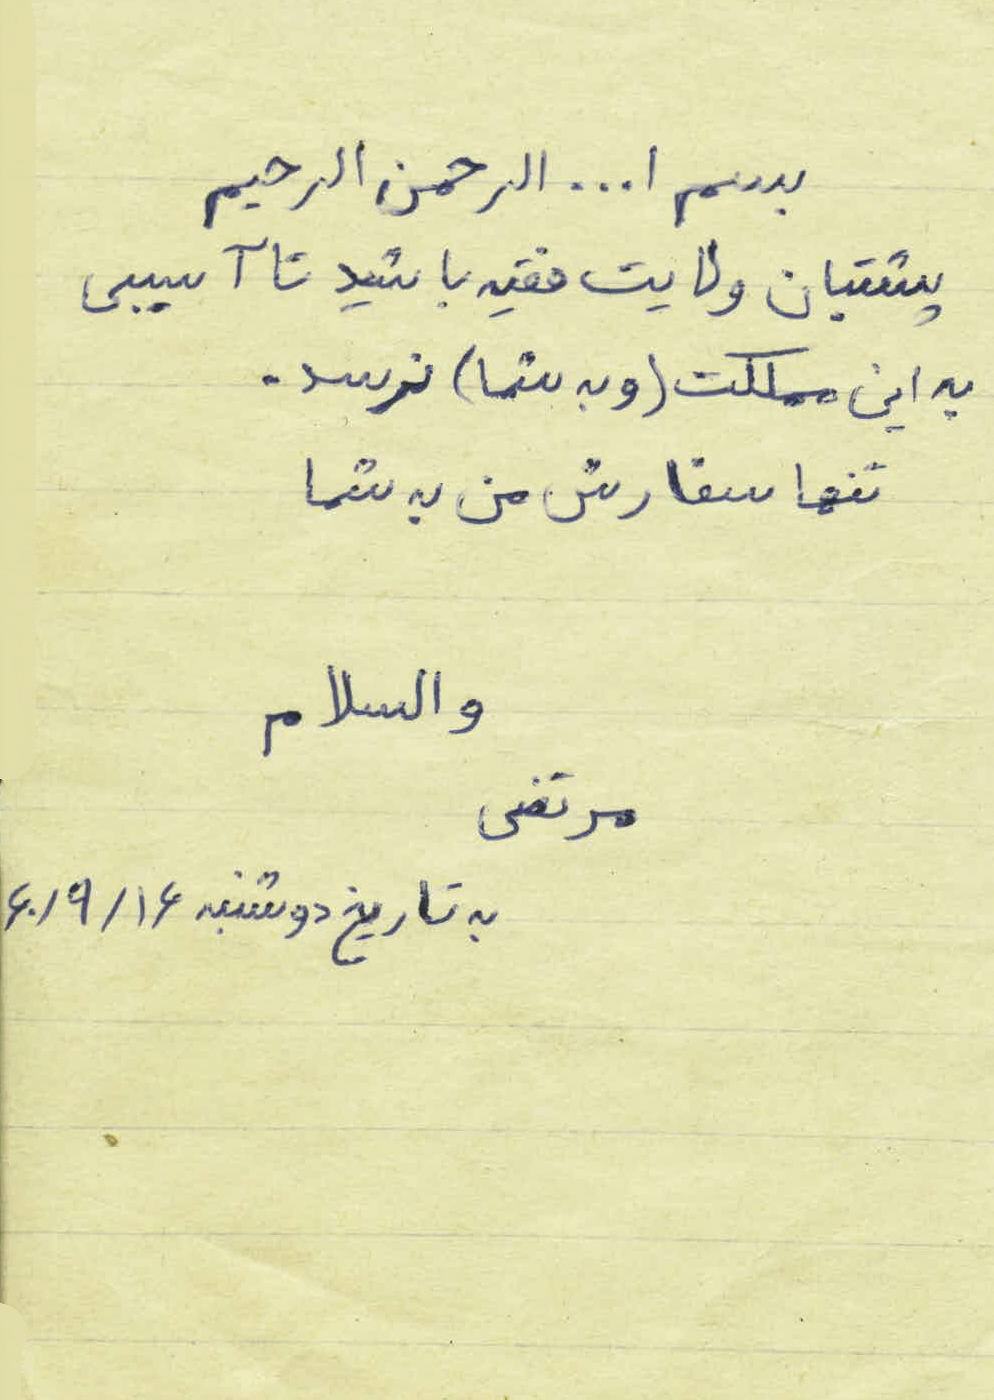 بسم ا... الرحمن الرحیم
پشتیبان ولایت فقیه باشید تا آسیبی
به این مملکت (و به شما) نرسد.
تنها سفارش من به شما
والسلام
مرتضی
به تاریخ دوشنبه ۶۰/۹/۱۶